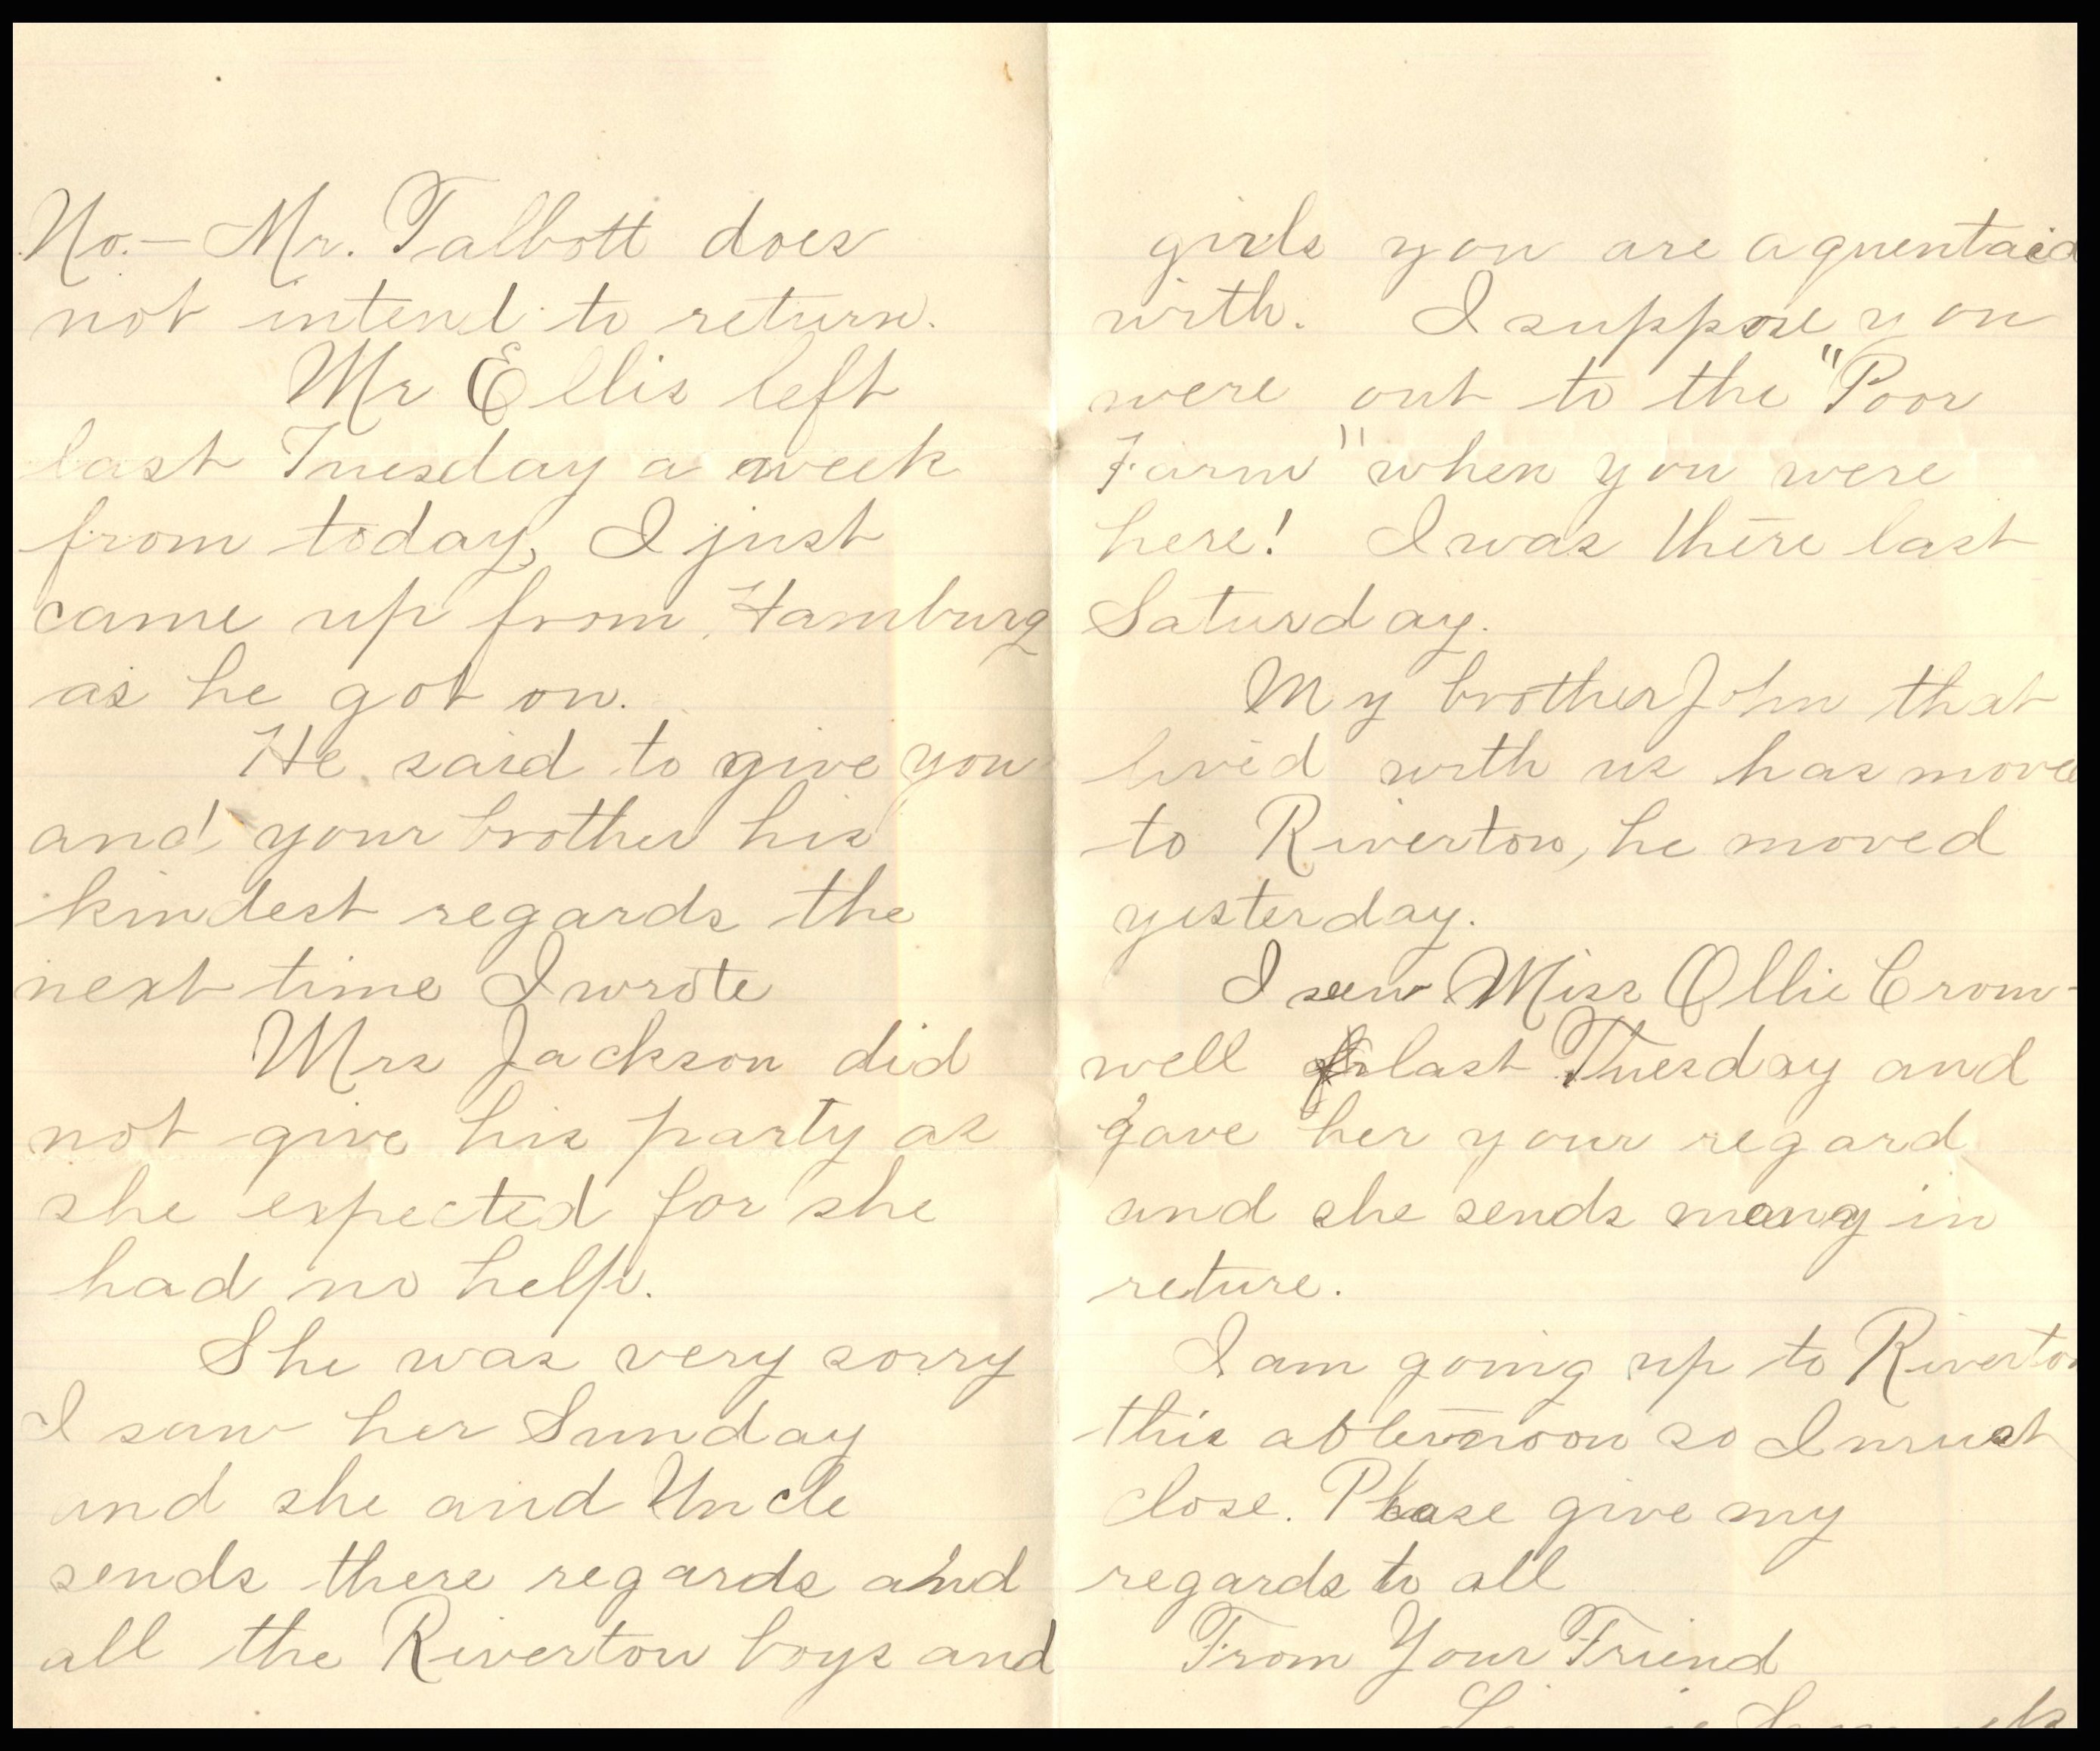 No.- Mr. Talbott does
not intend to return.
Mr Ellis left
last Tuesday a week
from today, I just
came up from Hamburg
as he got on.
He said to give you
and your brother his
kindest regards the
next time I wrote
Mrs Jackson did
not give his party as
she expected for she
had no help.
She was very sorry
I saw her Sunday
and she and Uncle
sends there regards and
all the Riverton boys and
girls you are aquentaid
with. I suppose you
were out to the "Poor
Farm" when you were
here! I was there last
Saturday.
My brother John that
lived with us has moved
to Riverton, he moved
yesterday.
I seen Miss Ollie Crom-
well last Tuesday and
gave her your regard
and she sends many in
reture.
I am going up to Riverton
this afternoon so I must
close. Please give my
regards to all
From Your Friend